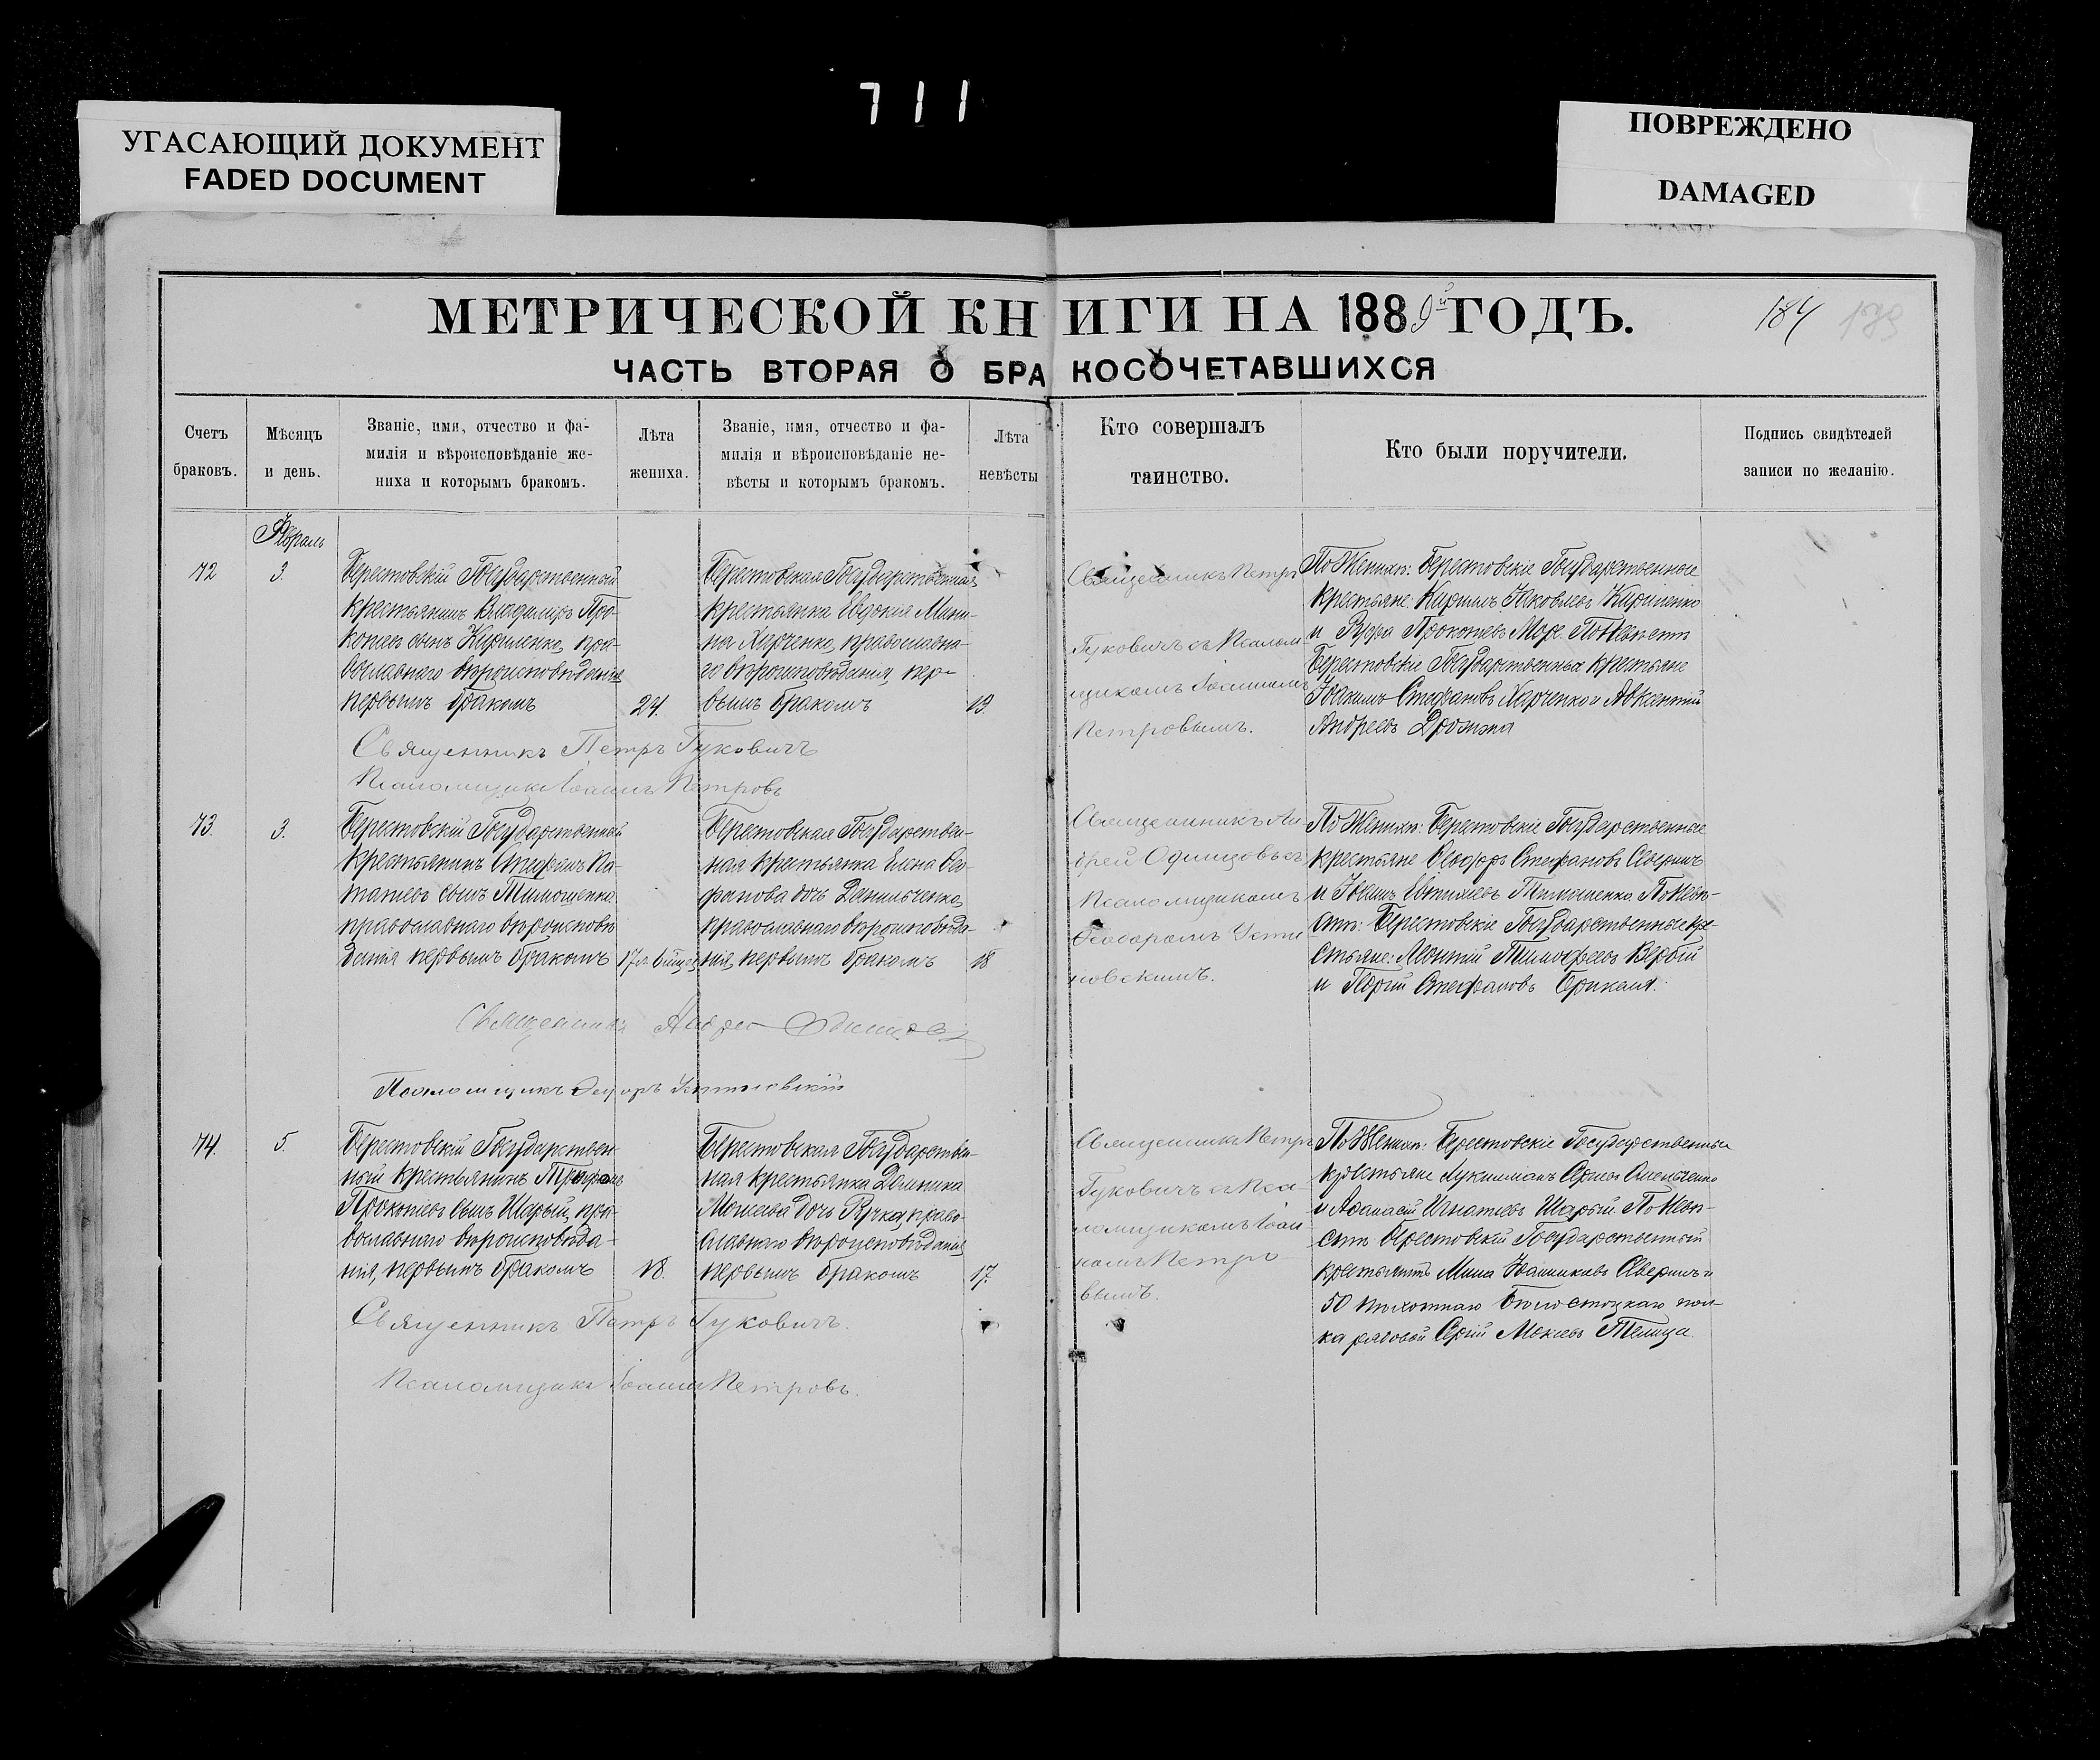 711
УГАСАЮЩИЙ ДОКУМЕНТ
FADED DOCUMENT
ПОВРЕЖДЕНО
DAMAGED
МЕТРИЧЕСКОЙ КНИГИ НА 1889й ГОДЪ.
184
ЧАСТЬ ВТОРАЯ О БРАКОСОЧЕТАВШИХСЯ
Счетъ
браковъ.
Мѣсяцъ
и день.
Званіе, имя, отчество и фа-
милія и вѣроисповѣданіе же-
ниха и которымъ бракомъ.
Лѣта
жениха.
Званіе, имя, отчество и фа-
милія и вѣроисповѣданіе не-
вѣсты и которымъ бракомъ.
Лѣта
невѣсты
Кто совершалъ
таинство.
Кто были поручители.
Подпись свидѣтелей
записи по желанію.
Февраль
72
3.
Берестовскій Государственный
крестьянинъ Владиміръ Про-
копіевъ сынъ Кириленко, пра-
вославнаго вѣроисповѣданія
первымъ бракомъ
24.
Берестовская Государственная
крестьянка Евдокія Мини-
на Харченко, православна-
го вѣроисповѣданія, пер-
вымъ бракомъ
19.
Священникъ Петръ
Гуковичъ съ Псалом-
щикомъ Іоанномъ
Петровымъ.
По Женихѣ: Берестовскіе Государственные
крестьяне: Кириллъ Яковлевъ Кириленко
и Прокопіевъ Моръ. По Невѣстѣ
Берестовскіе Государственные крестьяне
Іоакимъ Стефановъ Харченко и Авксентій
Андреевъ Дрозжа
Священникъ Петръ Гуковичъ
Псаломщикъ Іоаннъ Петровъ
73.
3.
Берестовскій Государственный
крестьянинъ Стефанъ Иг-
натіевъ сынъ Тимошенко
православнаго вѣроисповѣ
данія первымъ бракомъ
17 л. 6 мѣсяц.
Берестовская Государствен-
ная крестьянка Елена Сте-
фанова дочь Данильченко,
православнаго вѣроисповѣда-
нія, первымъ бракомъ
18
Священникъ Ан
дрей Одинцовъ съ
Псаломщикомъ
Феодоромъ Усти
новскимъ.
По Женихѣ: Берестовскіе Государственные
крестьяне Стефановъ Аверинъ
и Іоаннъ Евтихіевъ Тимошенко. По Невѣ-
стѣ: Берестовскіе Государственные кре-
стьяне: Леонтій Тимофеевъ Вербій
и Георгій Стефановъ
Священникъ Андрей Одинцовъ
Псаломщикъ Феодоръ Устиновскій
74.
5.
Берестовскій Государствен-
ный крестьянинъ Трофимъ
Прокопіевъ сынъ Шарый, пра-
вославнаго вѣроисповѣда-
нія, первымъ бракомъ
18.
Берестовская Государствен-
ная крестьянка Домникия
Моисеева дочь Ручка, право-
славнаго вѣроисповѣданія
первымъ бракомъ
17.
Священникъ Петръ
Гуковичъ съ Пса-
ломщикомъ Іоан
номъ Петро
вымъ.
По Женихѣ: Берестовскіе Государственные
крестьяне Сергіевъ
и Афанасій Игнатіевъ Шарый. По Невѣ-
стѣ Берестовскій Государственный
крестьянинъ Мина Іоанникіевъ Аверинъ и
50 пѣхотнаго Бѣлостоцкаго пол-
ка рядовой Сергій Мокіевъ Телица.
Священникъ Петръ Гуковичъ.
Псаломщикъ Іоаннъ Петровъ.